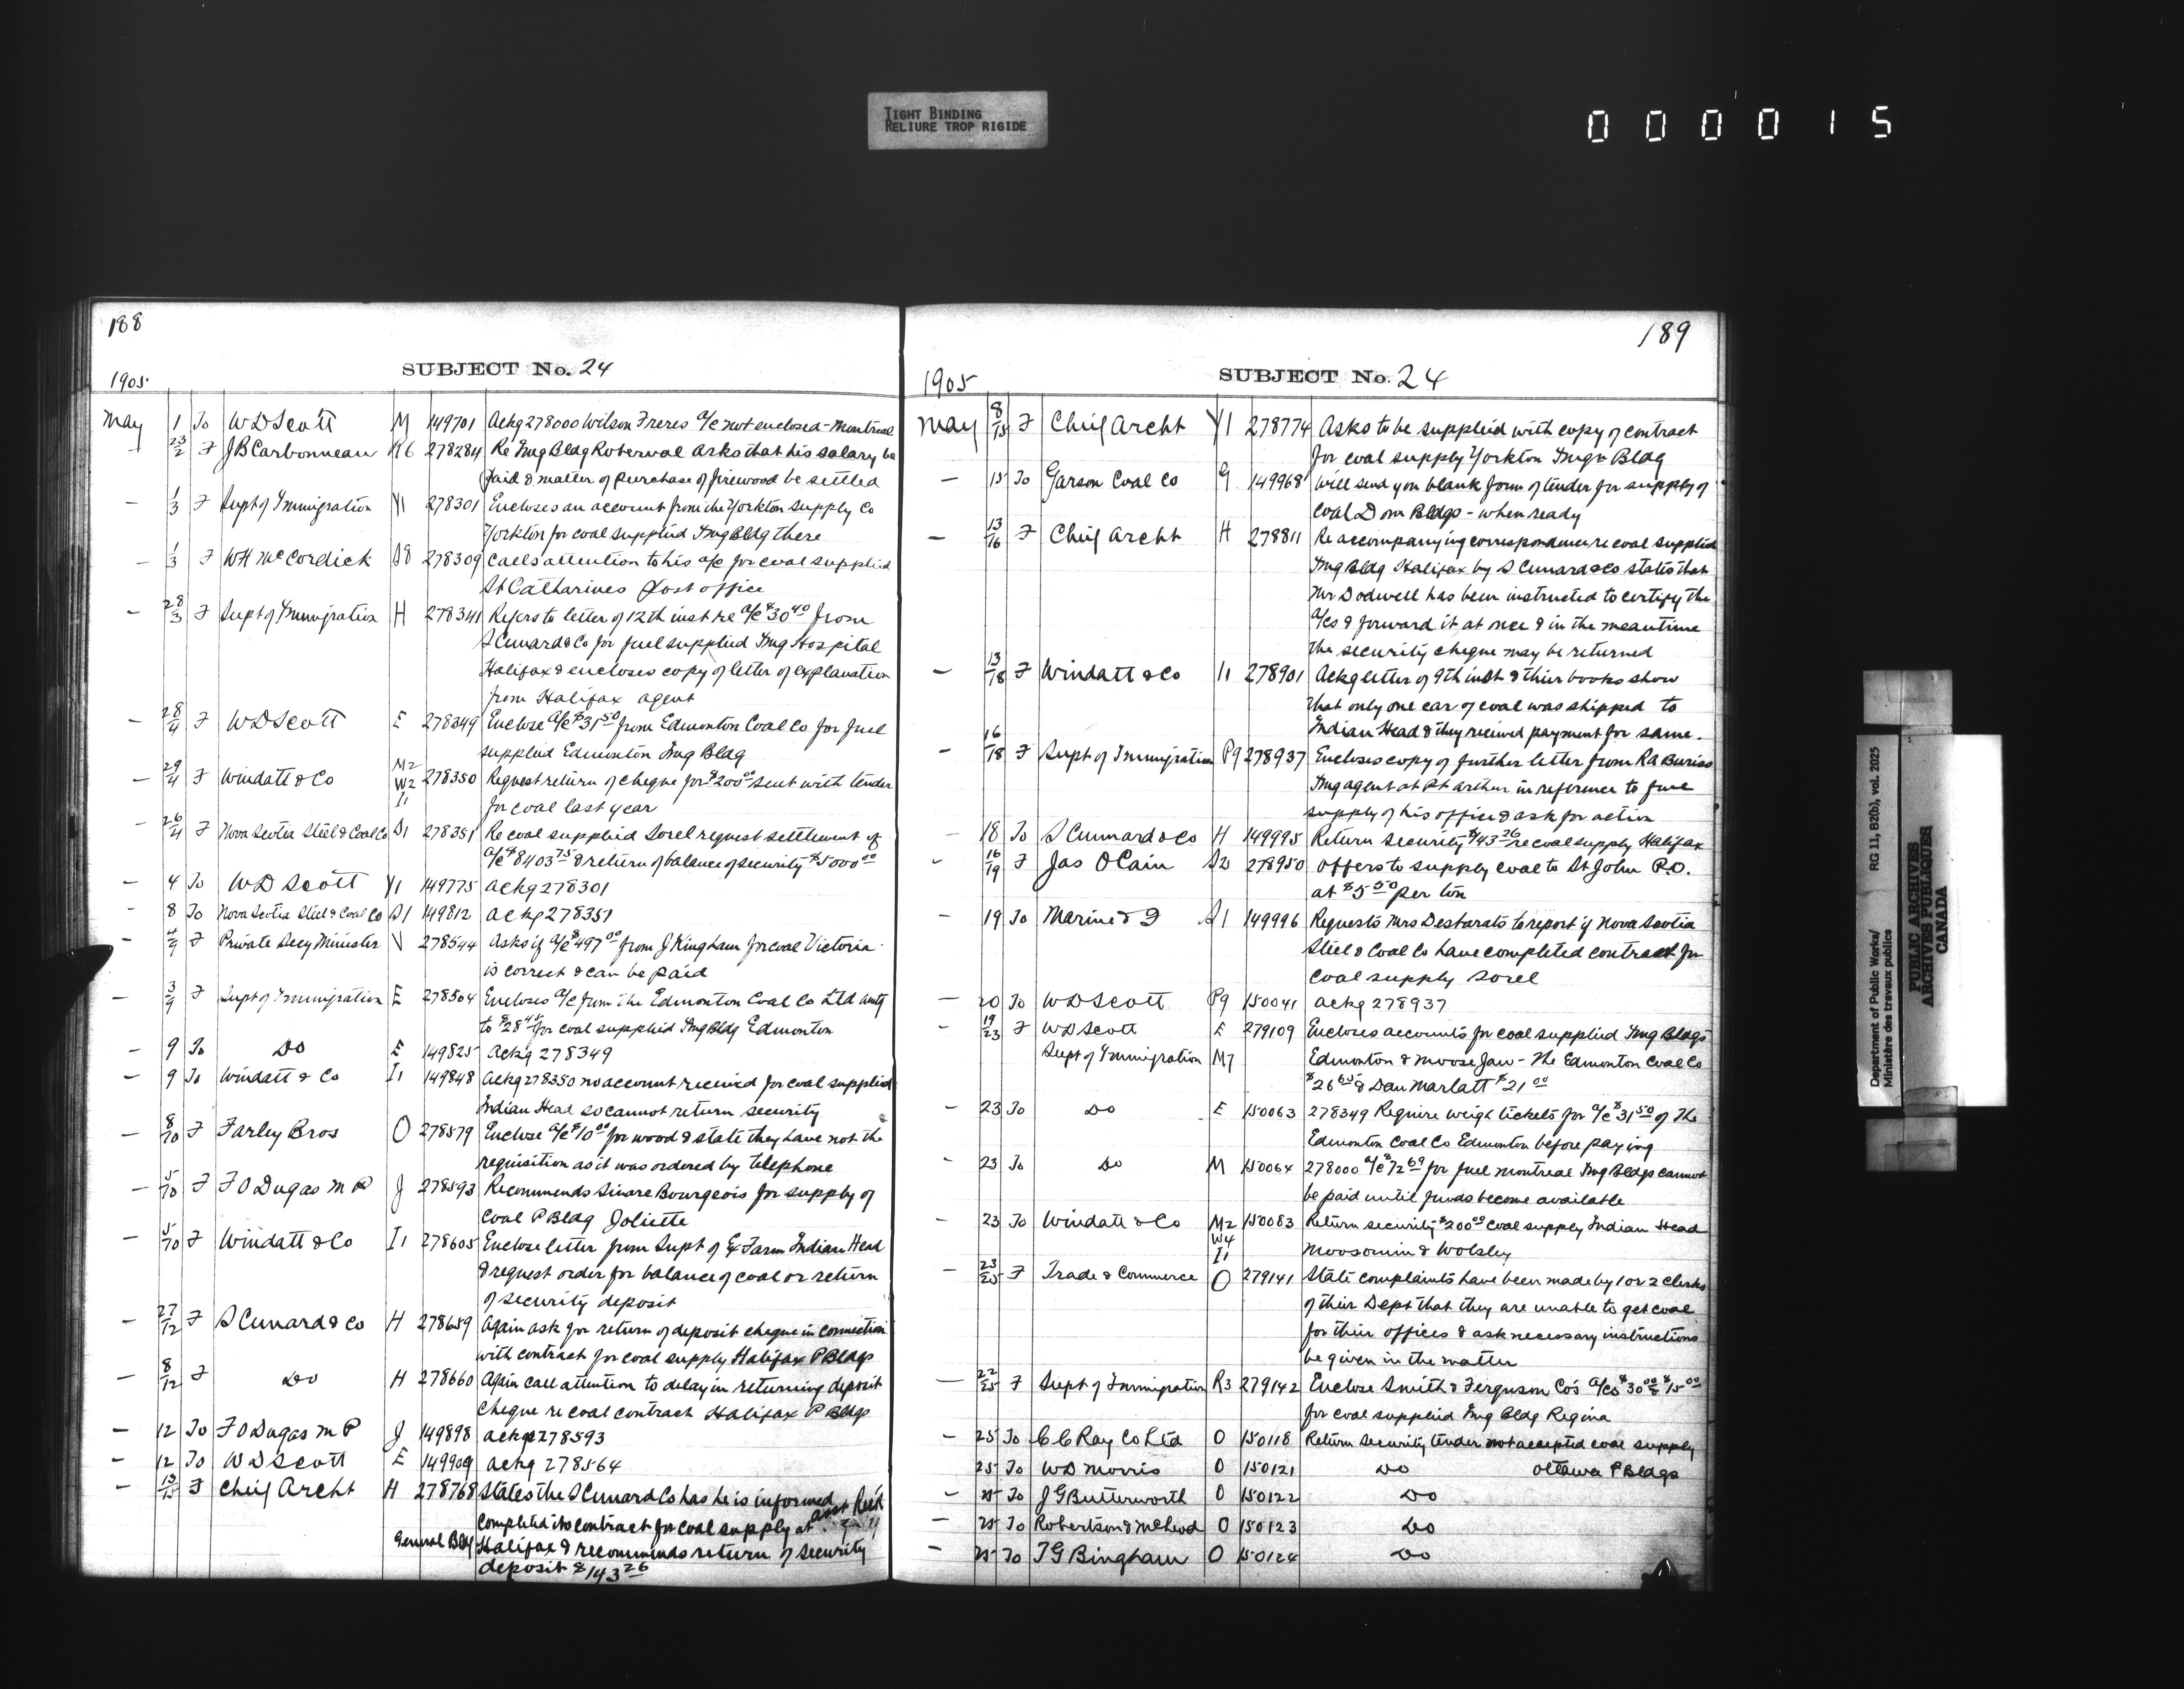 TIGHT BINDING
RELIURE TROP RIGIDE
000015
188
SUBJECT No. 24
1905
May 1 To W D Scott M 149701 Ackg 278000 Wilson Freres a/c not enclosed - Montreal
23/2 F J B Carbonneau R6 278284 Re Img Bldg Roberval asks that his salary be
paid & matter of purchase of firewood be settled
— 1/3 F Supt of Immigration Y1 278301 Encloses an account from the Yorkton Supply Co
Yorkton for coal supplied Img Bldg there
— 1/3 F W H McCordick S8 278309 Calls attention to his a/c for coal supplied
St Catharines Post office
— 28/3 F Supt of Immigration H 278341 Refers to letter of 12th inst re a/c $30 40 from
S Cunard & Co for fuel supplied Img Hospital
Halifax & encloses copy of letter of explanation
from Halifax agent
— 28/4 F W D Scott E 278349 Enclose a/c $31 50 from Edmonton Coal Co for fuel
supplied Edmonton Img Bldg
— 29/4 F Windatt & Co M2 W2 I1 278350 Request return of cheque for $200 00 sent with tender
for coal last year
— 26/4 F Nova Scotia Steel & Coal Co S1 278351 Re coal supplied Sorel request settlement of
a/c $8403 75 & return of balance of security $5000 00
— 4 To W D Scott Y1 149775 ackg 278301
— 8 To Nova Scotia Steel & Coal Co S1 149812 ackg 278351
— 4/9 F Private Secy Minister V 278544 Asks if a/c $497 00 from J Kingham for coal Victoria
is correct & can be paid
— 3/9 F Supt of Immigration E 278564 Encloses a/c from the Edmonton Coal Co Ltd amtg
to $28 45 for coal supplied Img Bldg Edmonton
— 9 To Do E 149825 Ackg 278349
— 9 To Windatt & Co I1 149848 Ackg 278350 no account received for coal supplied
Indian Head so cannot return security
— 8/10 F Farley Bros O 278579 Enclose a/c $10 00 for wood & state they have not the
requisition as it was ordered by telephone
— 5/10 F F O Dugas M P J 278593 Recommends Sinare Bourgeois for supply of
Coal P Bldg Joliette
— 5/10 F Windatt & Co I1 278605 Enclose letter from Supt of Ex Farm Indian Head
& request order for balance of coal or return
of security deposit
— 27/12 F S Cunard & Co H 278659 Again ask for return of deposit cheque in connection
with contract for coal supply Halifax P Bldgs
— 8/12 F Do H 278660 Again call attention to delay in returning deposit
cheque re coal contract Halifax P Bldgs
— 12 To F O Dugas M P J 149898 ackg 278593
— 12 To W D Scott E 149909 ackg 278564
— 13/15 F Chief Archt H 278768 States the S Cunard Co has he is informed
completed its contract for coal supply at
General Bldg Halifax & recommends return of security
deposit $143 26
189
SUBJECT No. 24
1905
May 8/15 F Chief Archt Y1 278774 Asks to be supplied with copy of contract
for coal supply Yorkton Imgn Bldg
— 15 To Garson Coal Co G 149968 Will send you blank form of tender for supply of
Coal Dom Bldgs - when ready
— 13/16 F Chief Archt H 278811 Re accompanying correspondence re coal supplied
Img Bldg Halifax by S Cunard & Co states that
Mr Dodwell has been instructed to certify the
a/cs & forward it at once & in the meantime
the security cheque may be returned
— 13/18 F Windatt & Co I1 278901 Ackg letter of 9th inst & their books show
that only one car of coal was shipped to
Indian Head & they received payment for same.
— 16/18 F Supt of Immigration P9 278937 Encloses copy of further letter from R A Burriss
Img agent at Pt Arthur in reference to fuel
supply of his office & ask for action
— 18 To S Cunnard & Co H 149995 Return Security $143 26 re coal supply Halifax
— 16/19 F Jas O Cain S2 278950 Offers to supply coal to St John P.O.
at $5 50 per ton
— 19 To Marine & F S1 149996 Requests Mrs Desbarats to report if Nova Scotia
Steel & Coal Co have completed contract for
Coal supply Sorel
— 20 To W D Scott P9 150041 ackg 278937
— 19/23 F W D Scott E 279109 Encloses accounts for coal supplied Img Bldgs
Supt of Immigration M7 Edmonton & Moose Jaw - The Edmonton Coal Co
$26 65 & Dan Marlatt $21 00
— 23 To Do E 150063 278349 Require weigh tickets for a/c $31 50 of The
Edmonton Coal Co Edmonton before paying
— 23 To Do M 150064 278000 a/c $72 69 for fuel Montreal Img Bldgs cannot
be paid until funds become available
— 23 To Windatt & Co M2 W4 I1 150083 Return security $200 00 coal supply Indian Head
Moosomin & Wolsley
— 23/25 F Trade & Commerce O 279141 State complaints have been made by 1 or 2 clerks
of their Dept that they are unable to get coal
for their offices & ask necessary instructions
be given in the matter
— 22/25 F Supt of Immigration R3 279142 Enclose Smith & Ferguson Co's a/cs $30 00 & $15 00
for coal supplied Img Bldg Regina
— 25 To C C Ray Co Ltd O 150118 Return security tender not accepted coal supply
25 To W D Morris O 150121 Do Ottawa P Bldgs
— 25 To J G Butterworth O 150122 Do
— 25 To Robertson & McLeod O 150123 Do
— 25 To T G Bingham O 150124 Do
Department of Public Works/ RG 11, B2(b), vol. 2025
Ministère des travaux publics
PUBLIC ARCHIVES
ARCHIVES PUBLIQUES
CANADA